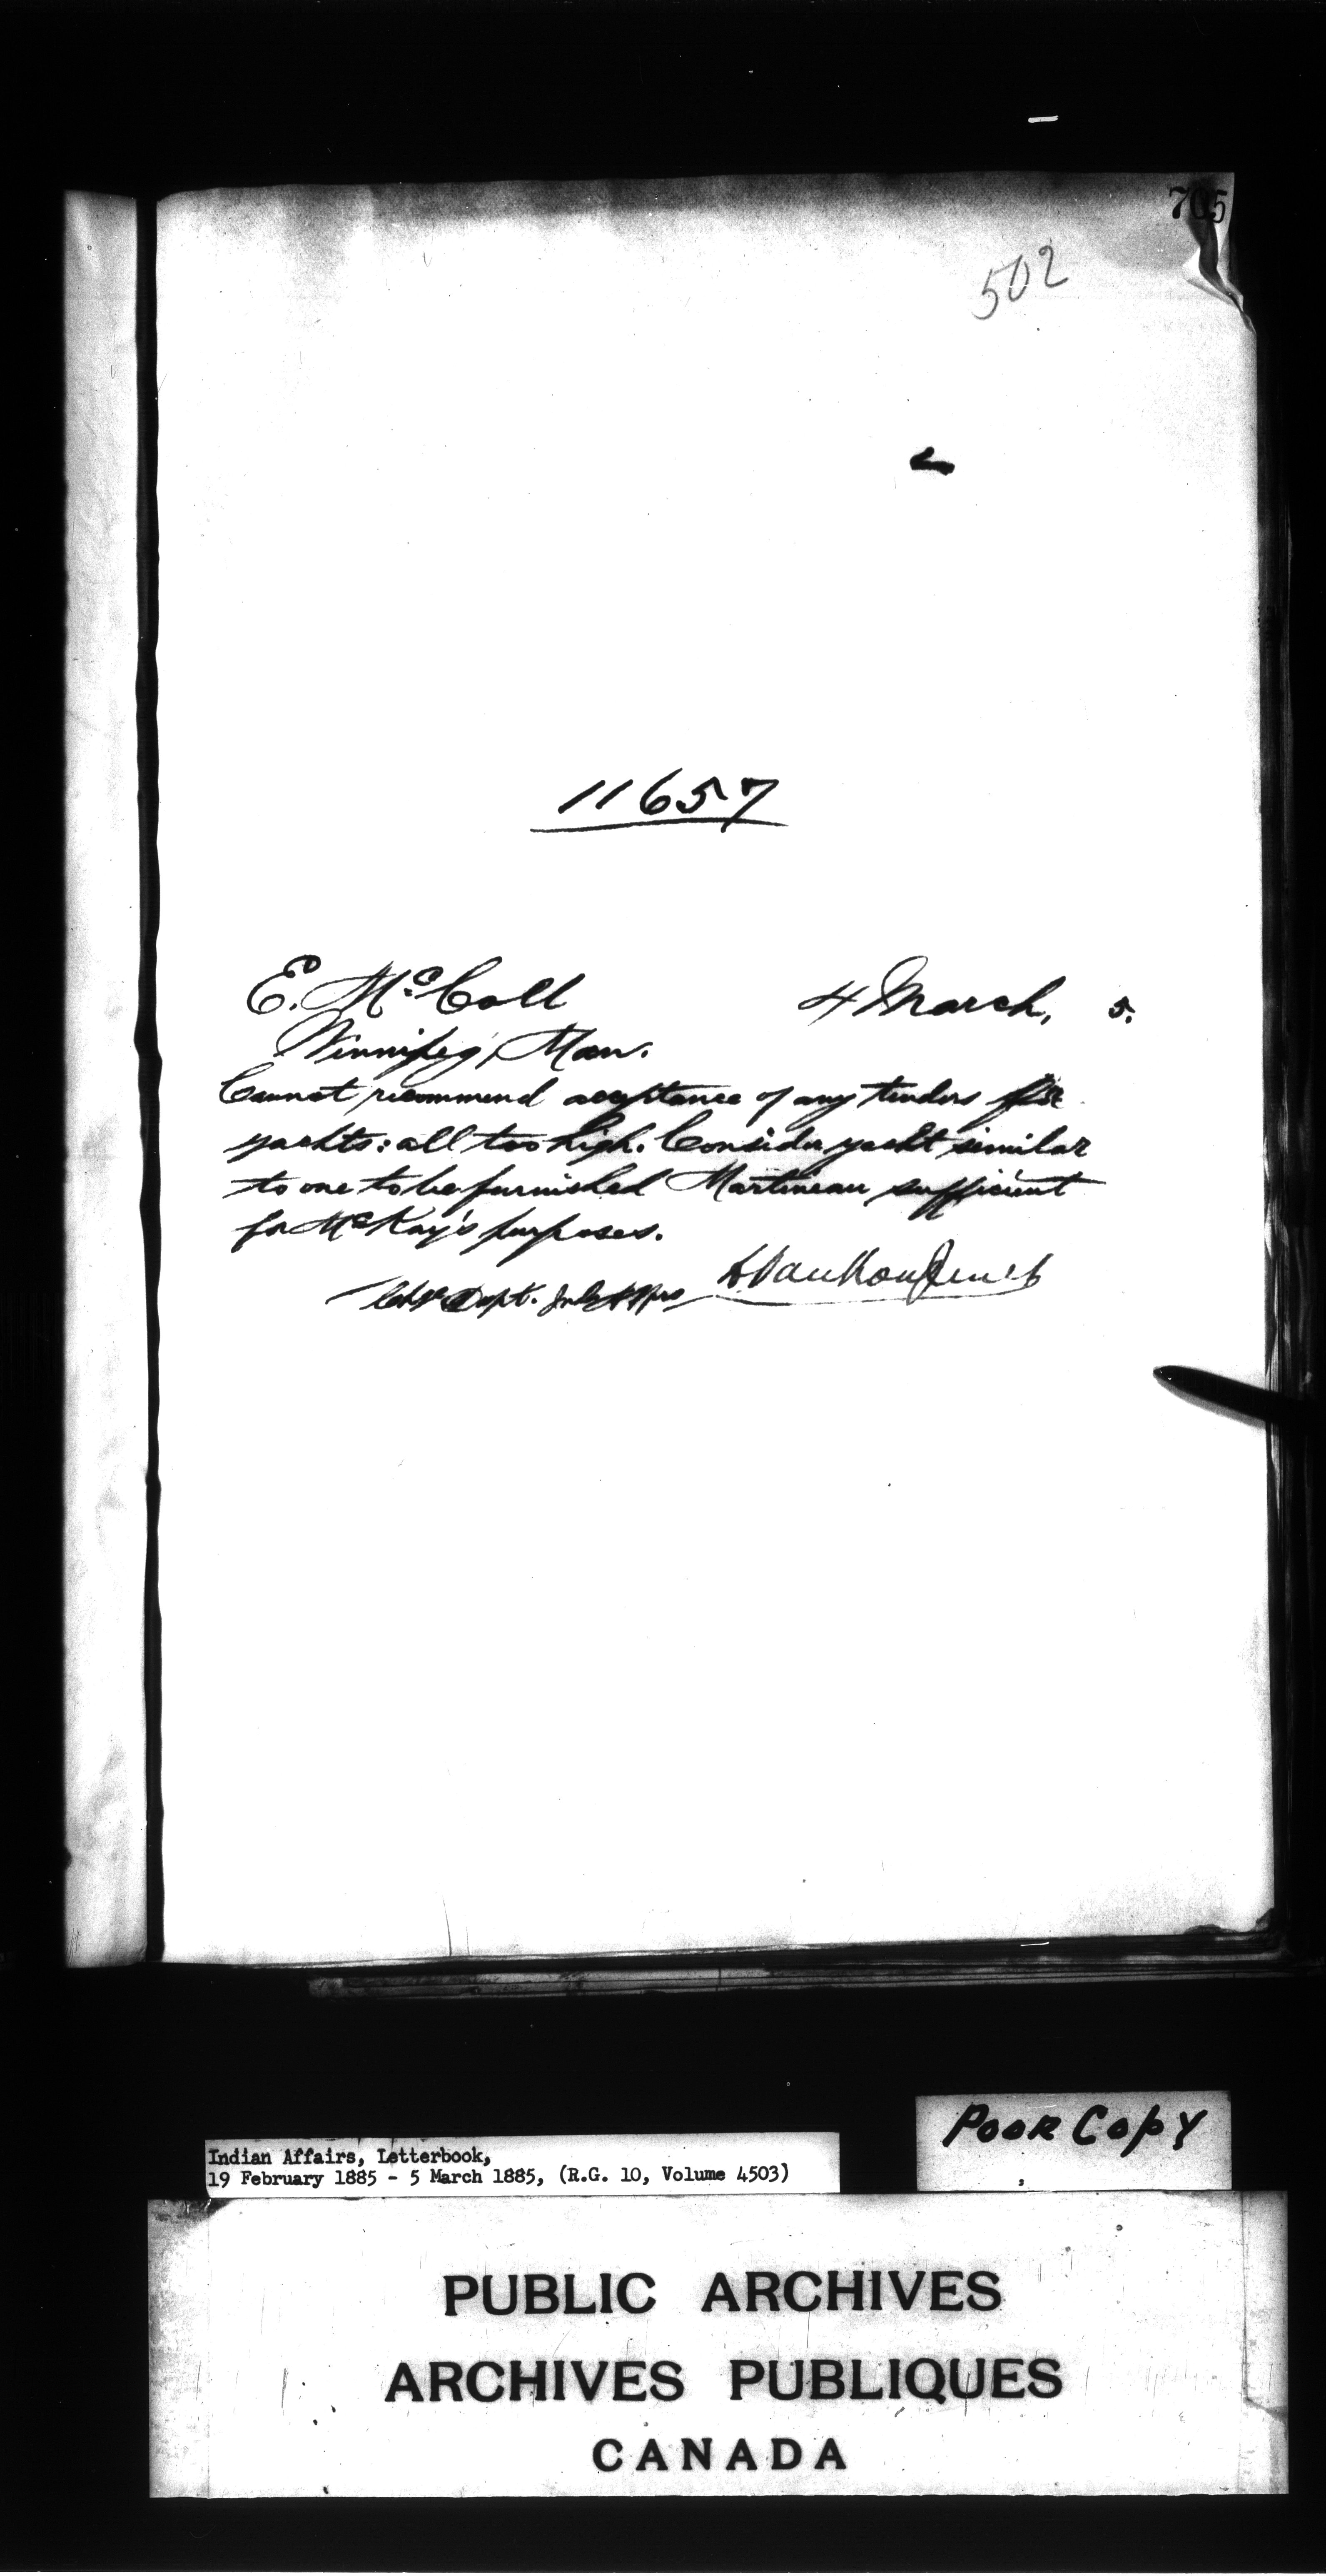 705
502
11657
E. McColl 4 March, 5.
Winnipeg, Man.
Cannot recommend acceptance of any tenders for
yachts: all too high. Consider yacht similar
to one to be furnished Martineau sufficient
for McKay's purposes.
Dept. L. VanKoughnet
Indian Affairs, Letterbook,
19 February 1885 - 5 March 1885, (R.G. 10, Volume 4503)
POOR COPY
PUBLIC ARCHIVES
ARCHIVES PUBLIQUES
CANADA